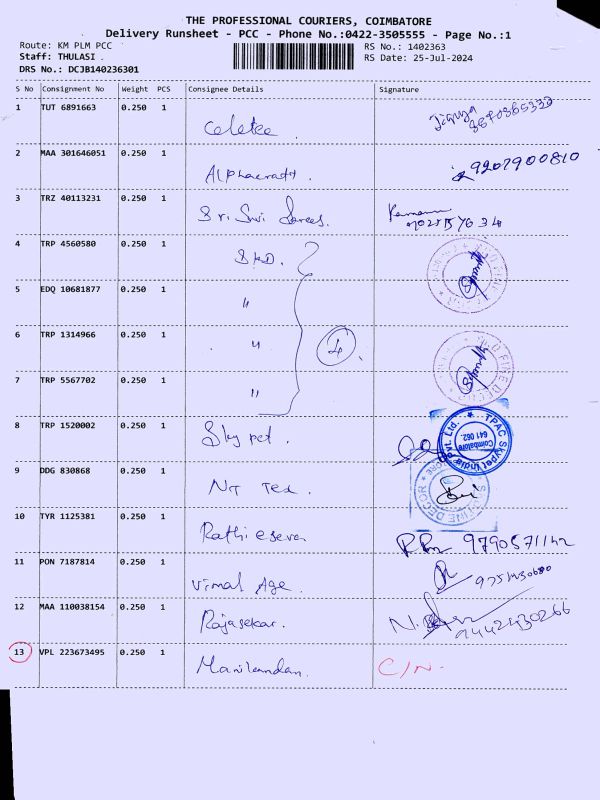 THE PROFESSIONAL COURIERS, COIMBATORE
Delivery Runsheet - PCC - Phone No.:0422-3505555 - Page No.:1
Route: KM PLM PCC RS No.: 1402363
Staff: THULASI . RS Date: 25-Jul-2024
DRS No.: DCJB140236301
S No Consignment No Weight PCS Consignee Details Signature
1 TUT 6891663 0.250 1
celetee .
2 MAA 301646051 0.250 1 9207900810
Alphacraft .
3 TRZ 40113231 0.250 1
Sri Sri Sarees.
4 TRP 4560580 0.250 1
SKD.
5 EDQ 10681877 0.250 1
"
6 TRP 1314966 0.250 1
" 4
7 TRP 5567702 0.250 1
"
8 TRP 1520002 0.250 1 TPAC Skypet India Pvt. Ltd.
Coimbatore
641 062
Skypet .
9 DDG 830868 0.250 1
NT Tex .
10 TYR 1125381 0.250 1
9790571142
11 PON 7187814 0.250 1
Vimal Age .
12 MAA 110038154 0.250 1
Rajasekar. 9442430266
13 VPL 223673495 0.250 1
Manikandan. C/N.